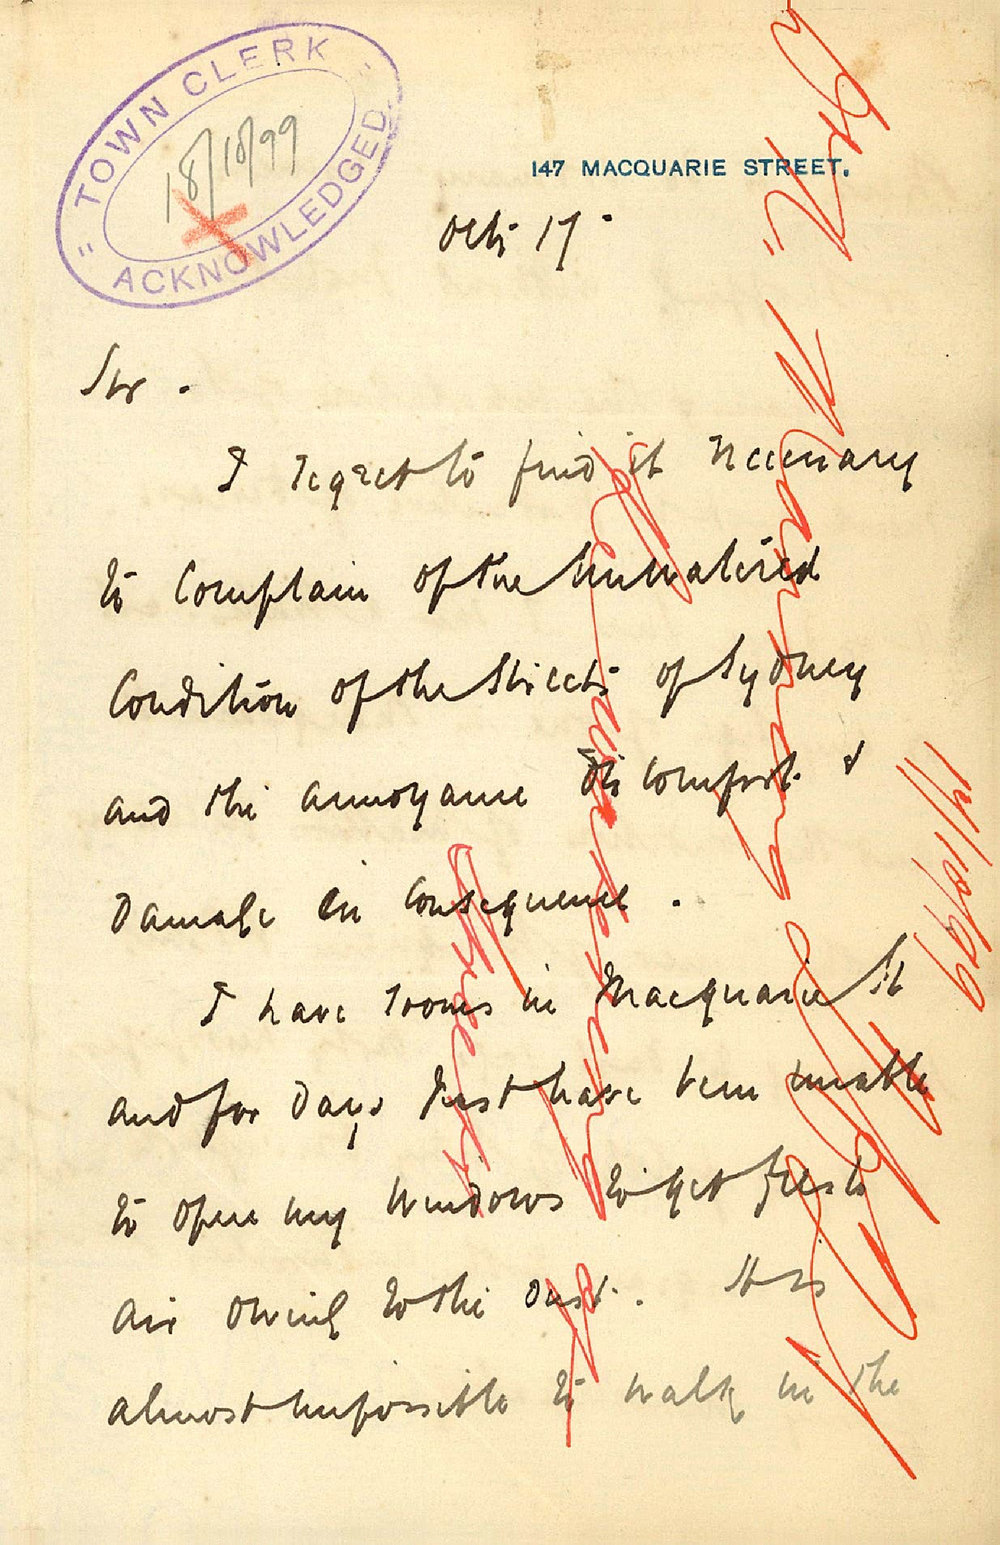 TOWN CLERK
18/10/99
ACKNOWLEDGED
147 MACQUARIE STREET.
Oct 17
Sir.
I regret to find it necessary
to complain of the unwatered
condition of the streets of Sydney
and the annoyance discomfort &
damage in consequence.
I have rooms in Macquarie St
and for days past have been unable
to open my windows to get fresh
air owing to the dust. It is
almost impossible to walk in the
watering of
Streets
17/10/99